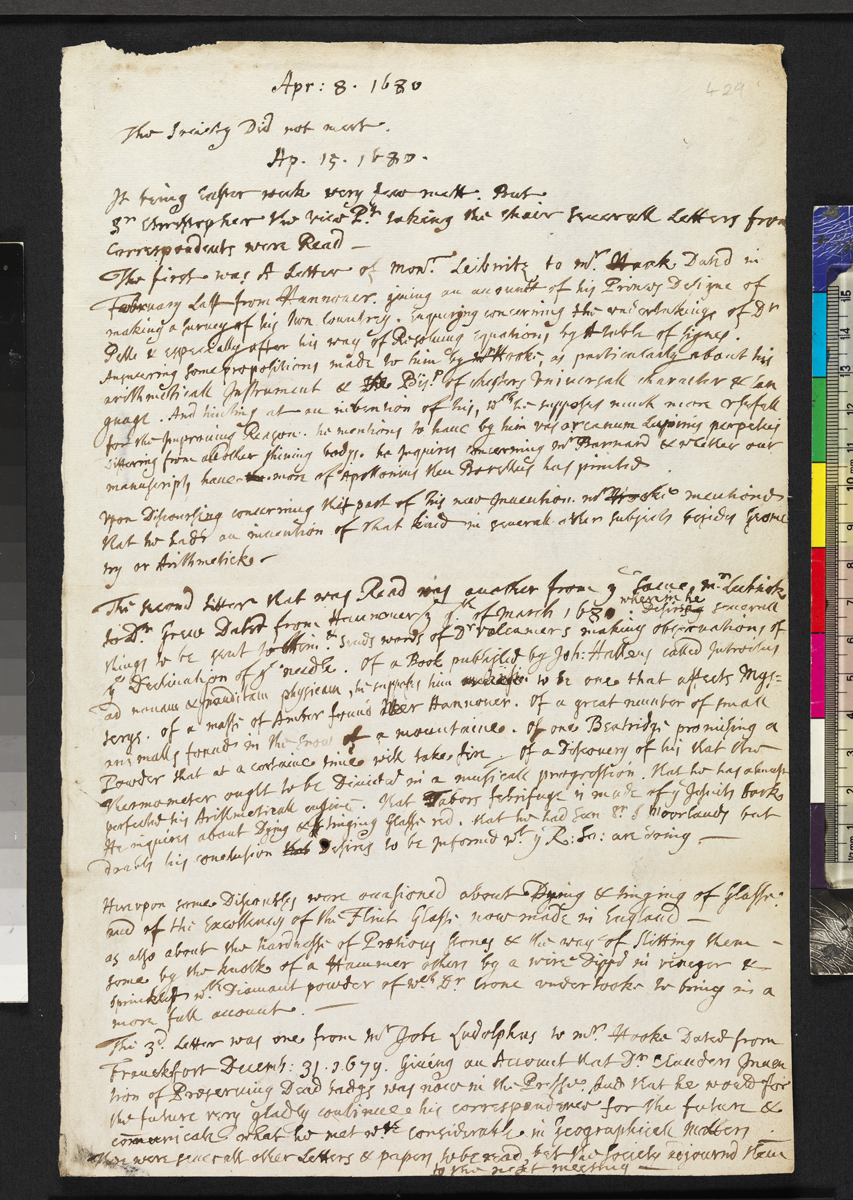 429
Apr: 8. 1680
The Society Did not meet.
Ap. 15. 1680.
It being Easter week very few mett. But
Sr Christopher the vice Pt taking the chair severall Letters from
Correspondents were Read —
The first was A Letter of Monr. Leibnitz to mr. Hook Dated in
February Last from Hannover. giving an account of his Princes Designe of
making a survey of his own Countrey. Enquiring concerning the undertakings of Dr
Pelle & especially after his way of Resolving Equations by A table of signes.
Answering some propositions made to him by mr Hooke, as particularly about his
arithmeticall Instrument & the Bisp of chesters Universall character & lan
guage. And hinting at an invention of his, wch he supposes much more usefull
for the Improving Reason. he mentions to have by him
from another shining body. he inquires concerning mr Barnard & whether our
manuscripts have more of Apollonius then Borellus has printed.
Upon Discoursing concerning that part of his new Invention. mr Hooke mentiond
that he had an invention of that kind in severall other subjects besides Geome
try or Arithmetick —
The second Letter that was Read was another from ye same, mr Leibnitz
to Dr Grew Dated from Hannover ye of march 1680 wherein he Desires severall
things to be sent to him. Sends word of Dr Volcamers making observations of
ye Declination of ye needle. Of a Book published by Joh: called Introitus
ad novam & inauditam physicam, he supposes him to be one that affects Mys=
terys. of a masse of Amber found neer Hannover. Of a great number of small
animalls found in the snow of a mountaine. Of one Beatridge promising a
Powder that at a certaine time will take fire — of a Discovery of his that the
thermometer ought to be Divided in a musicall progression. that he has almost
perfected his Arithmeticall engine. that Tabors febrifuge is made of ye Jesuits bark
He inquires about Dying & tinging Glasse red. that he had seen Sr. S Moorlands but
doubts his conclusion Desires to be informed wt ye R: So: are doing —
Hereupon some Discourses were occasioned about Dying & tinging of Glasse
and of the Excellency of the Flint Glasse now made in England —
as also about the hardnesse of Pretious stones & the way of slitting them —
some by the knock of a Hammer others by a wire Dippd in vineger &
sprinkled wth Diamant powder of wch Dr Crone undertooke to bring in a
more full account. —
The 3d. Letter was one from mr Jobe Ludolphus to mr. Hooke Dated from
Franckfort Decemb: 31. 1679. Giving an Account that Dr Clauders Inven
tion of Preserving Dead bodys was now in the Presse. And that he would for
the future very gladly continue his correspondence for the future &
communicate what he met wth considerable in Geographicall Matters —
There were severall other Letters & papers to be read, but the Society adjournd them
to the next meeting —